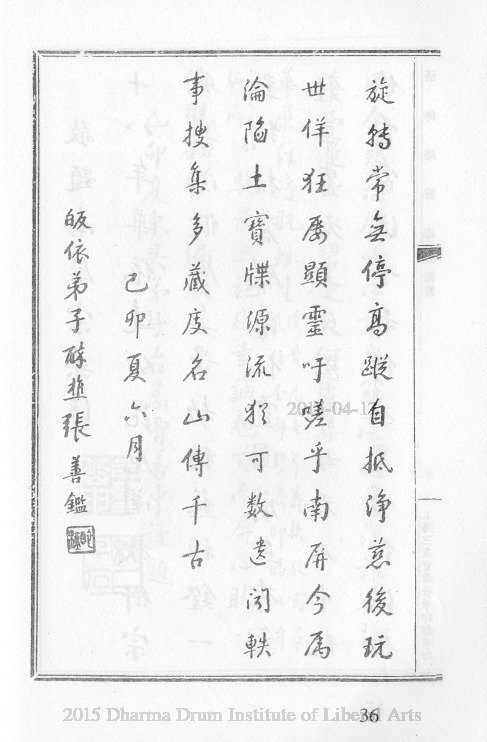 旋轉常無停高蹤自抵淨慈後玩
世佯狂屡顯靈吁嗟乎南屏今為
淪陷土寶牒源流猶可数遗闻軼
事搜集多藏庋名山傳千古
己卯夏六月
皈依弟子酥樵張善鑑
2015 Dharma Drum Institute of Liberal Arts
36